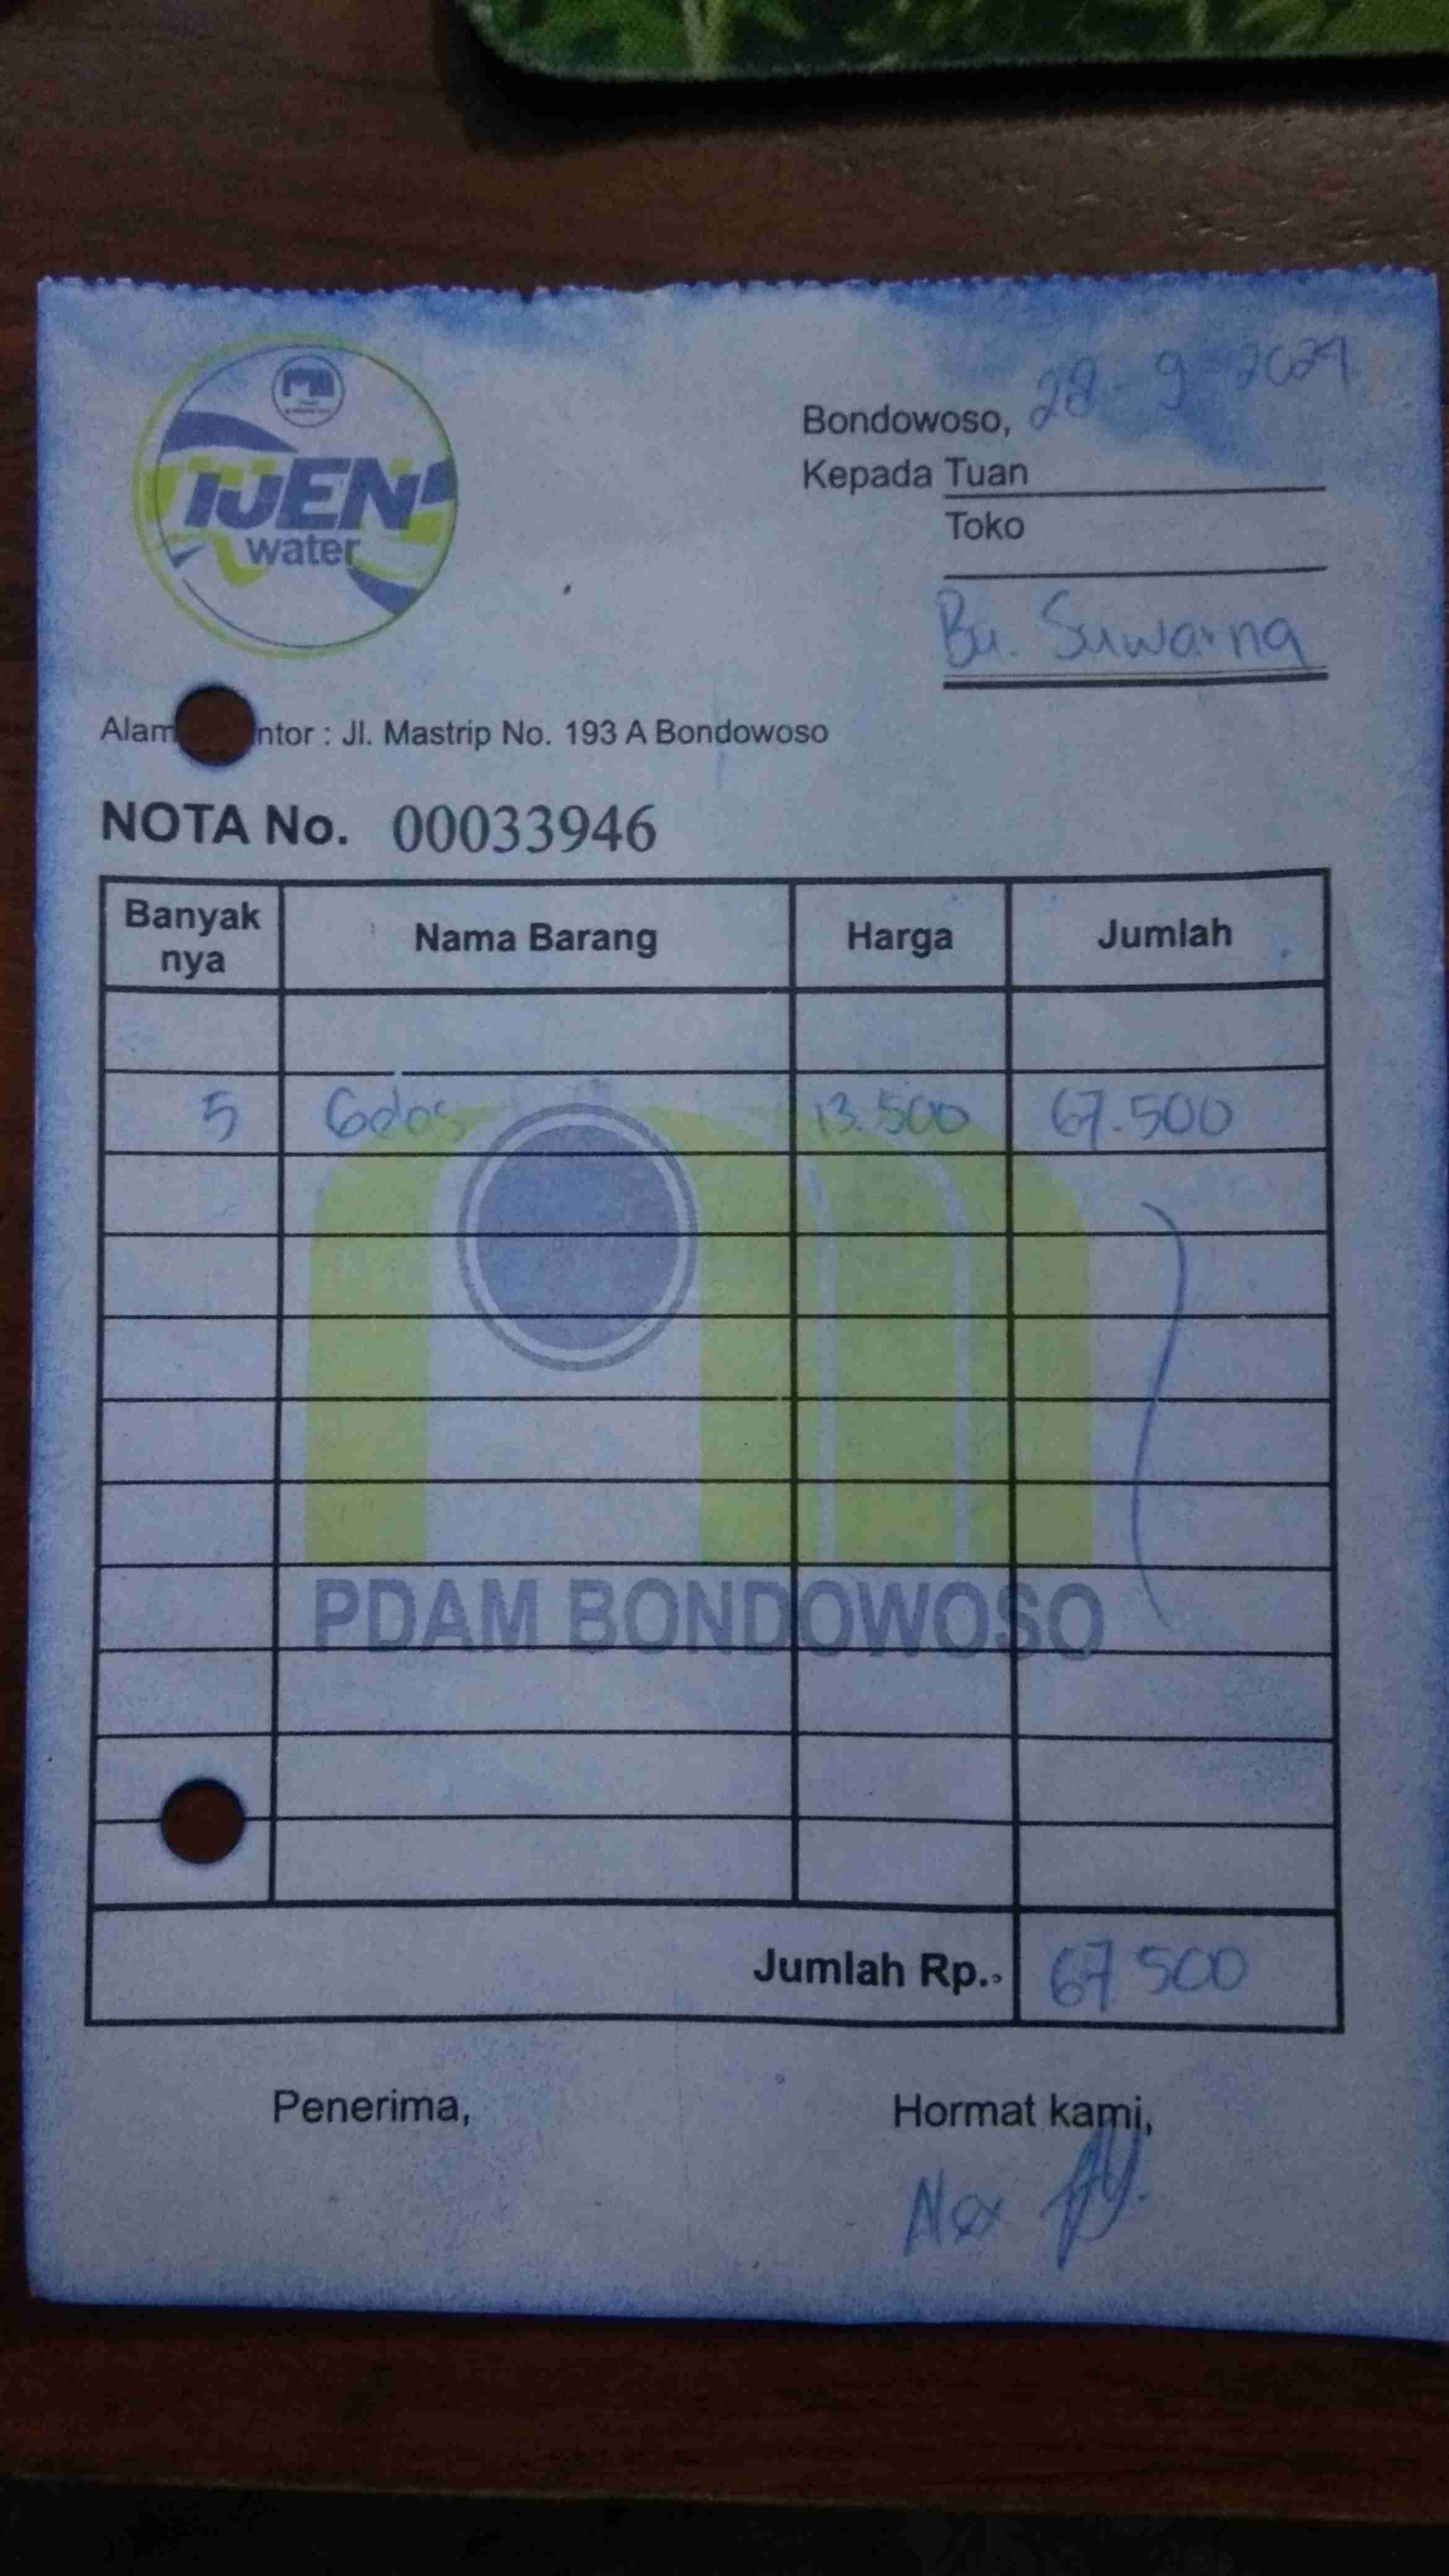 IJEN
water
Bondowoso, 28-9-2024
Kepada Tuan
Toko
Bu. Suwarna
Alam ntor : Jl. Mastrip No. 193 A Bondowoso
NOTA No. 00033946
Banyak nya Nama Barang Harga Jumlah
5 Gelas 13.500 67.500
PDAM BONDOWOSO
Jumlah Rp. 67.500
Penerima, Hormat kami,
Alex